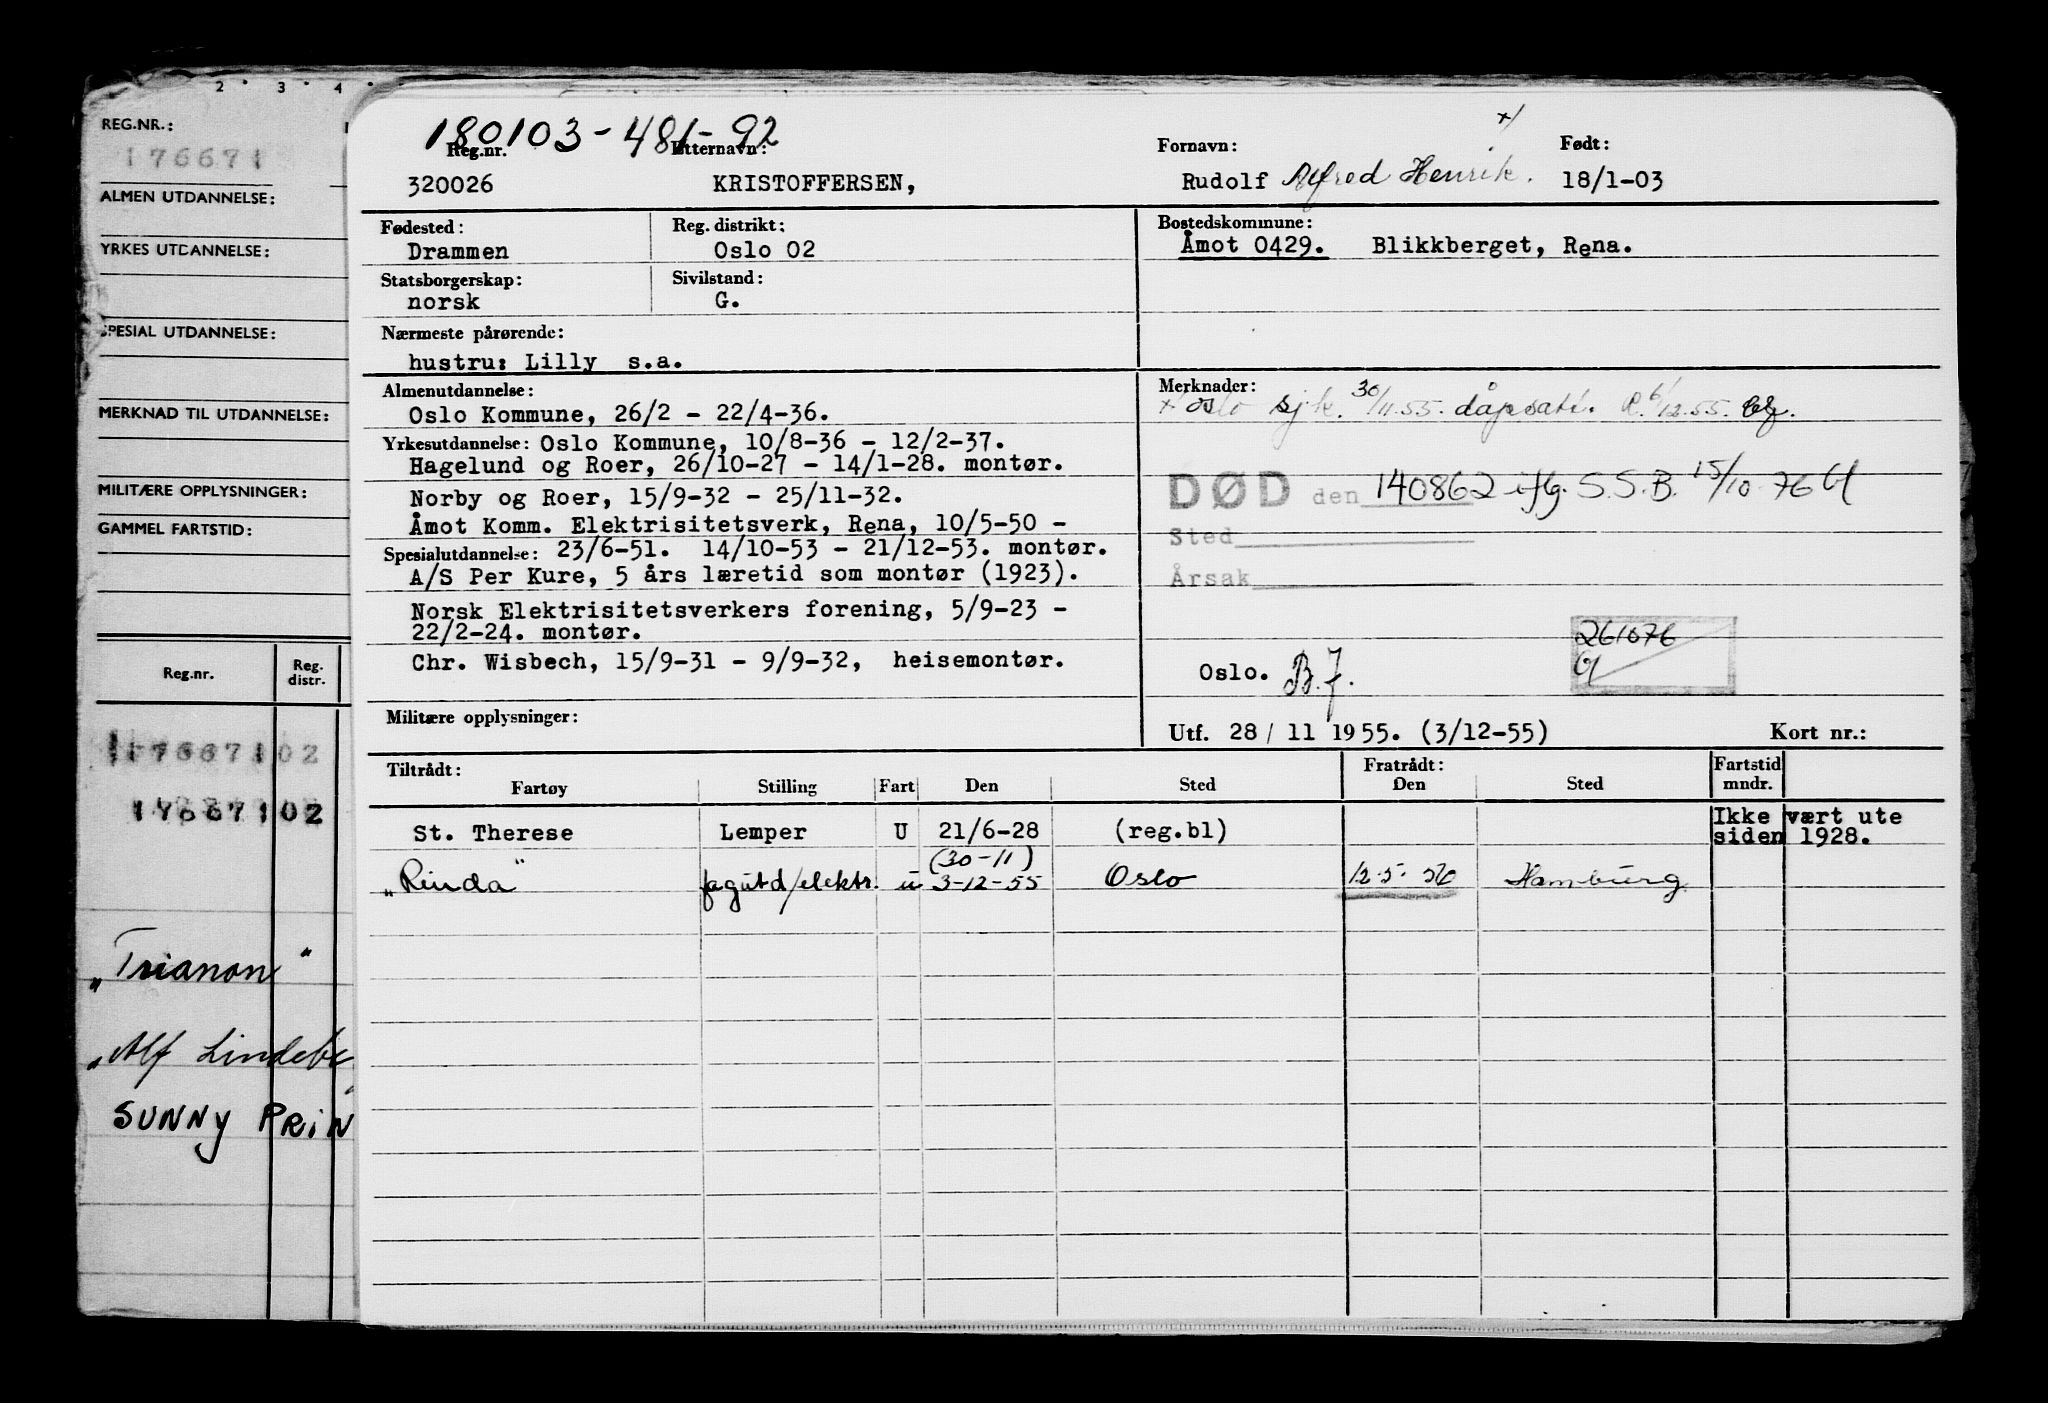 2 · 3 · 4 ·
REG.NR.:
176671
ALMEN UTDANNELSE:
YRKES UTDANNELSE:
SPESIAL UTDANNELSE:
MERKNAD TIL UTDANNELSE:
MILITÆRE OPPLYSNINGER:
GAMMEL FARTSTID:
Reg.nr.
Reg. distr.
17667102
17667102
„Trianon"
„Alf Lindebe
SUNNY PRIN
180103-481-92
Reg.nr. Etternavn: Fornavn: x/ Født:
320026 KRISTOFFERSEN, Rudolf Alfred Henrik. 18/1-03
Fødested: Reg. distrikt: Bostedskommune:
Drammen Oslo 02 Åmot 0429. Blikkberget, Rena.
Statsborgerskap: Sivilstand:
norsk G.
Nærmeste pårørende:
hustru: Lilly s.a.
Almenutdannelse:
Oslo Kommune, 26/2 - 22/4-36.
Yrkesutdannelse: Oslo Kommune, 10/8-36 - 12/2-37.
Hagelund og Roer, 26/10-27 - 14/1-28. montør.
Norby og Roer, 15/9-32 - 25/11-32.
Åmot Komm. Elektrisitetsverk, Rena, 10/5-50 -
Spesialutdannelse: 23/6-51. 14/10-53 - 21/12-53. montør.
A/S Per Kure, 5 års læretid som montør (1923).
Norsk Elektrisitetsverkers forening, 5/9-23 -
22/2-24. montør.
Chr. Wisbech, 15/9-31 - 9/9-32, heisemontør.
Militære opplysninger:
Merknader:
x oslo sjk. 30/11.55. dåpsatt. R. 6/12.55.
DØD den 140862 iflg. S.S.B. 15/10 76
Sted
Årsak
261076
Oslo. B.J.
Utf. 28/ 11 1955. (3/12-55) Kort nr.:
Tiltrådt: Fratrådt: Fartstid
Fartøy Stilling Fart Den Sted Den Sted mndr.
St. Therese Lemper U 21/6-28 (reg.bl) Ikke vært ute
siden 1928.
(30-11)
„Rinda" fagutd/elektr. u 3-12-55 Oslo 12-5-56 Hamburg